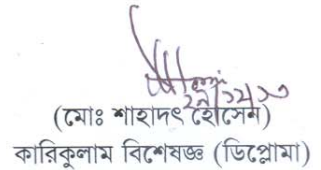 (মোঃ শাহাদৎ হোসেন)
কারিকুলাম বিশেষজ্ঞ (ডিপ্লোমা)